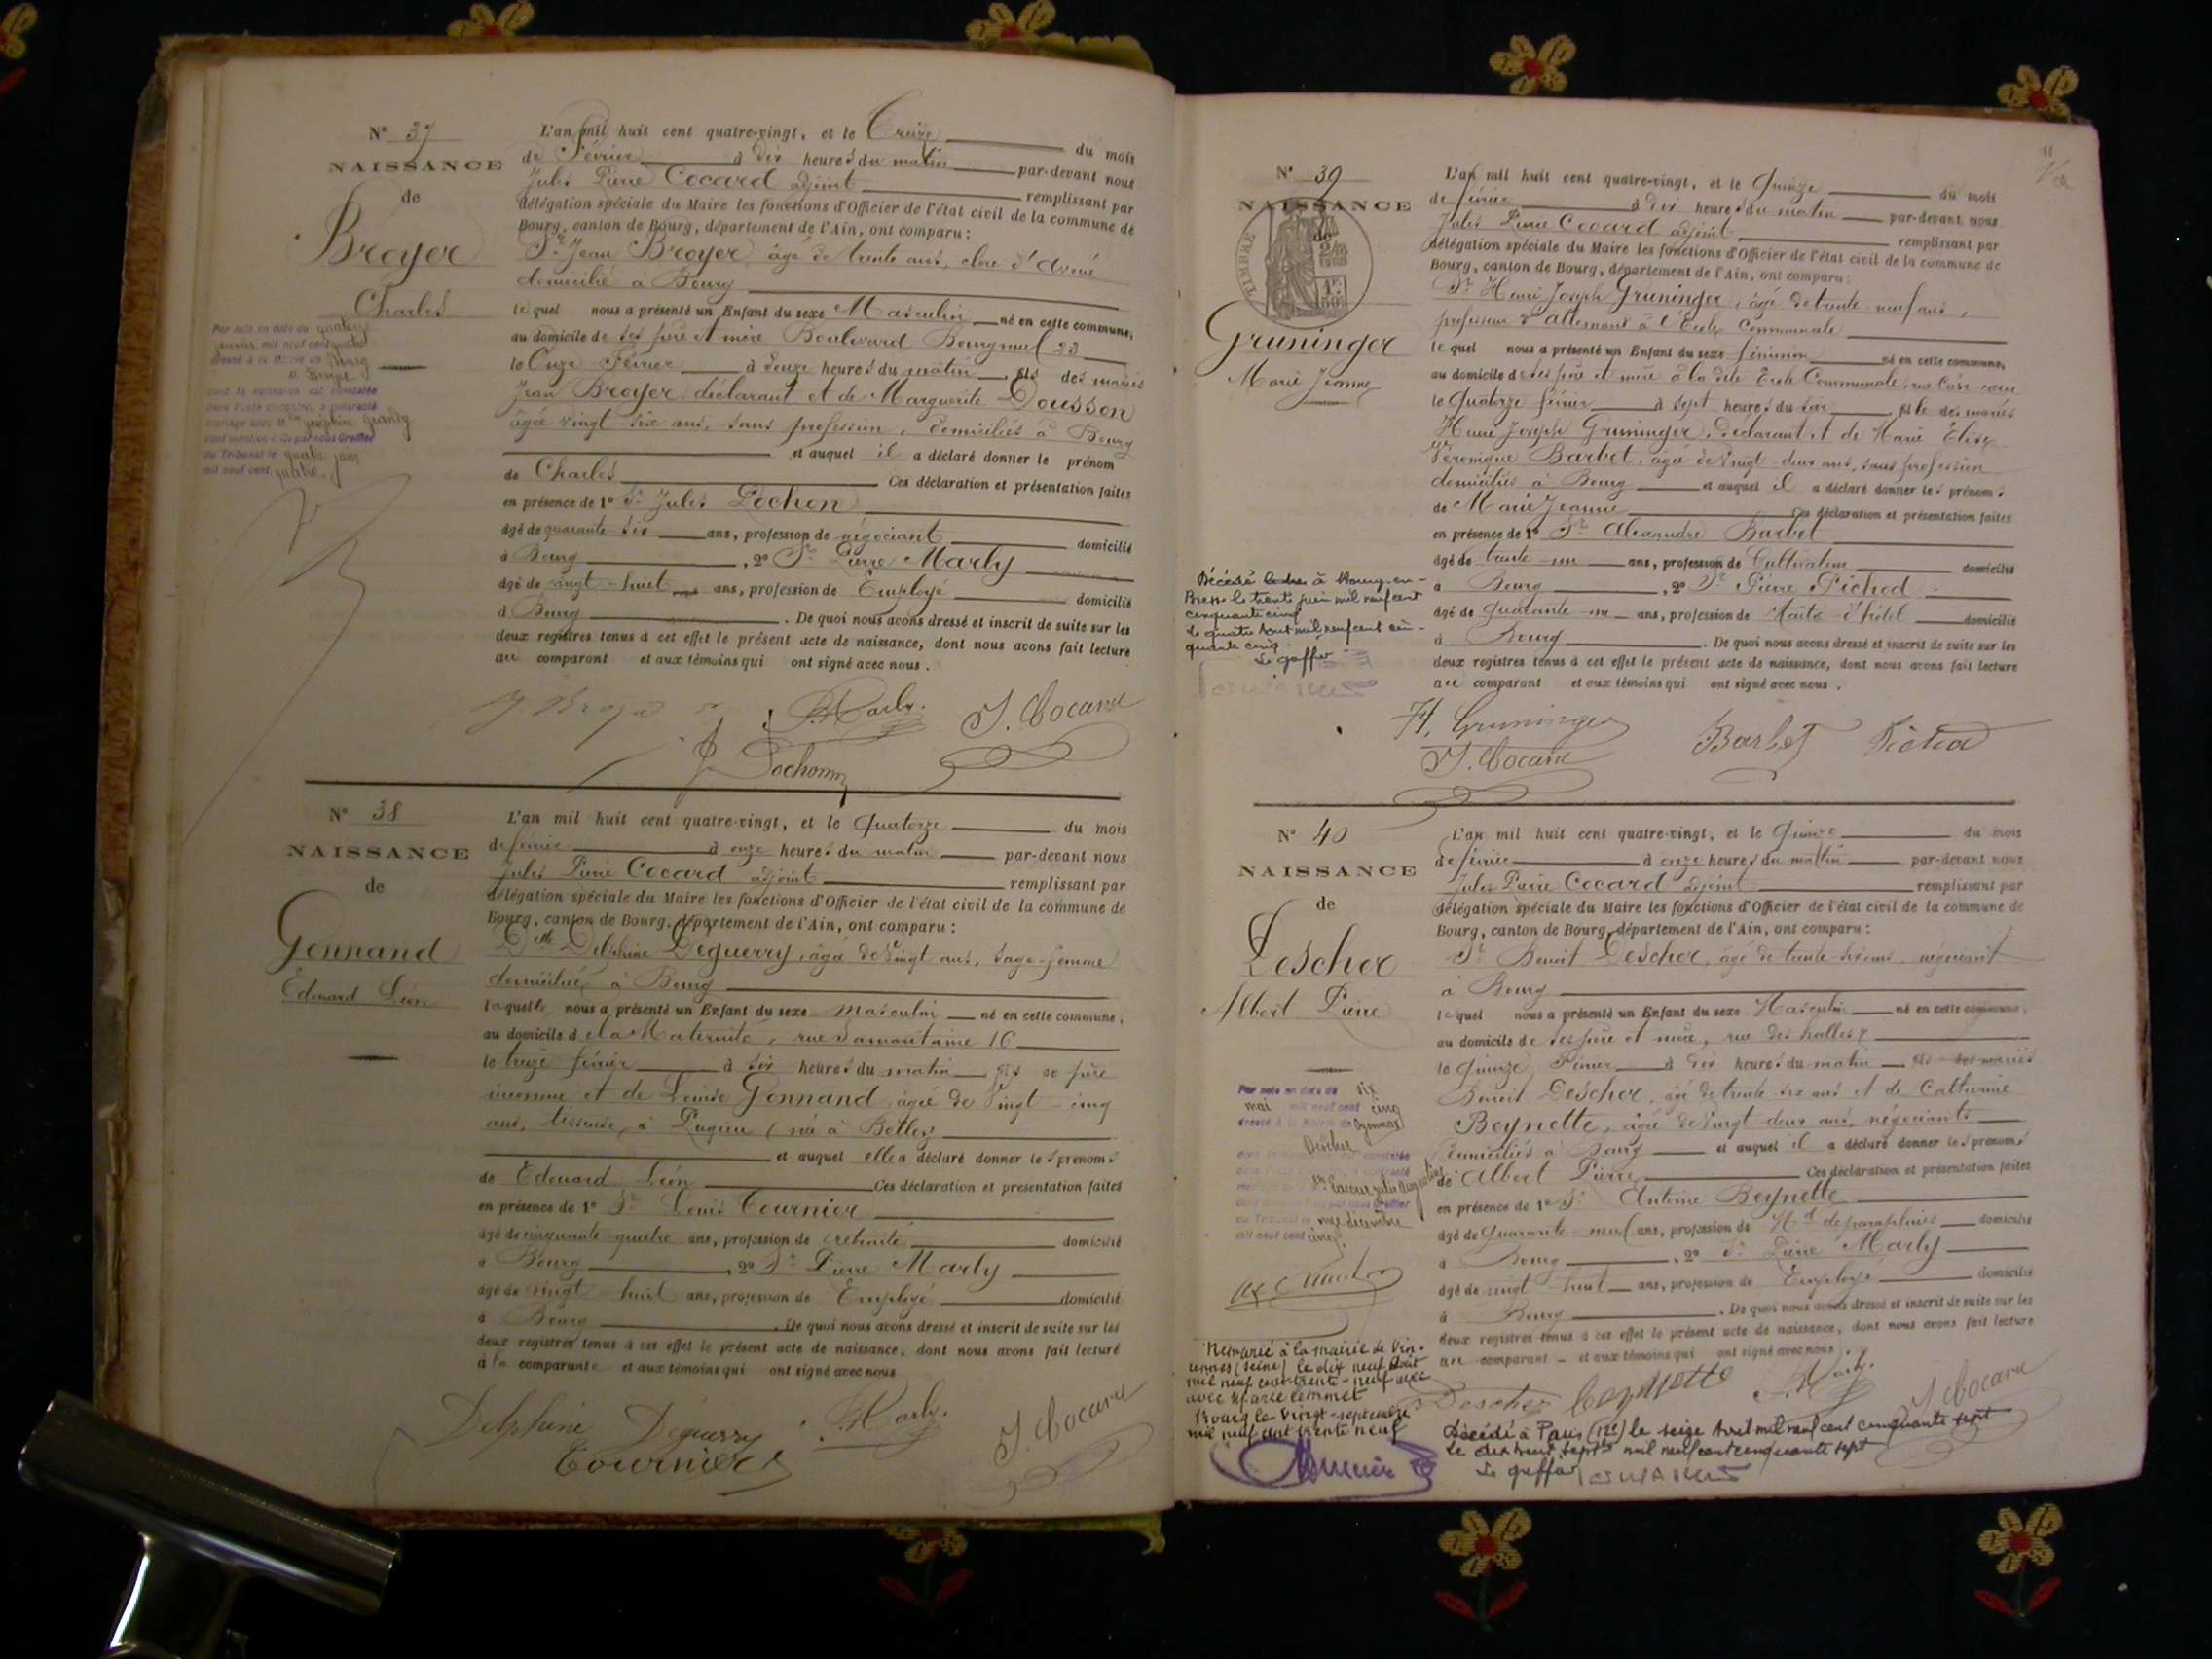 N° 37
NAISSANCE
de
Broyer
Charles
Par acte en date du quatorze
janvier mil neuf cent quatre
dressé à la Mairie de Bourg
M. Broyer
dont la naissance est constatée
dans l'acte ci-contre, a contracté
mariage avec Mlle Joséphine
dont mention faite par nous Greffier
du Tribunal le quatre juin
mil neuf cent quatre.
L'an mil huit cent quatre-vingt, et le Treize du mois
de Février à dix heures du matin par-devant nous
Jules Pierre Cocard adjoint remplissant par
délégation spéciale du Maire les fonctions d'Officier de l'état civil de la commune de
Bourg, canton de Bourg, département de l'Ain, ont comparu :
Sr Jean Broyer âgé de trente ans, clerc d'avoué
domicilié à Bourg
lequel nous a présenté un Enfant du sexe Masculin né en cette commune,
au domicile de ses père et mère Boulevard Bourgmuf 23
le Onze Février à douze heures du matin, fils des mariés
Jean Broyer, déclarant et de Marguerite Dousson
âgée vingt-six ans, sans profession, domiciliés à Bourg
et auquel il a déclaré donner le prénom
de Charles Ces déclaration et présentation faites
en présence de 1° Sr Jules Pochon
âgé de quarante-six ans, profession de négociant domicilié
à Bourg, 2° Sr Pierre Marly
âgé de vingt-huit ans, profession de Employé domicilié
à Bourg. De quoi nous avons dressé et inscrit de suite sur les
deux registres tenus à cet effet le présent acte de naissance, dont nous avons fait lecture
au comparant et aux témoins qui ont signé avec nous.
J. Broyer P. Marly. J. Cocard
J Pochon
N° 38
NAISSANCE
de
Gonnand
Edouard Léon
L'an mil huit cent quatre-vingt, et le Quatorze du mois
de février à onze heures du matin par-devant nous
Jules Pierre Cocard adjoint remplissant par
délégation spéciale du Maire les fonctions d'Officier de l'état civil de la commune de
Bourg, canton de Bourg, département de l'Ain, ont comparu :
Delle Delphine Deguerry, âgée de vingt ans, sage-femme
domiciliée à Bourg
laquelle nous a présenté un Enfant du sexe masculin né en cette commune,
au domicile de la Maternité, rue Samaritaine 16
le treize février à six heures du matin fils de père
inconnu et de Louise Gonnand, âgée de vingt-cinq
ans, tisseuse, à Lagnieu (née à Bettey
et auquel elle a déclaré donner les prénoms
de Edouard Léon Ces déclaration et présentation faites
en présence de 1° Sr Louis Tournier
âgé de cinquante-quatre ans, profession de retraité domicilié
à Bourg, 2° Sr Pierre Marly
âgé de vingt-huit ans, profession de Employé domicilié
à Bourg. De quoi nous avons dressé et inscrit de suite sur les
deux registres tenus à cet effet le présent acte de naissance, dont nous avons fait lecture
à la comparante et aux témoins qui ont signé avec nous
Delphine Déguerry P. Marly. J. Cocard
Tournier
N° 39
NAISSANCE
de
TIMBRE
Gruninger
Marie Jeanne
Décédée à Bourg-en-
Bresse le trente juin mil neuf cent
cinquante cinq
Le quatre Août mil neuf cent cin-
quante cinq
Le greffier
L'an mil huit cent quatre-vingt, et le Quinze du mois
de février à dix heures du matin par-devant nous
Jules Pierre Cocard adjoint remplissant par
délégation spéciale du Maire les fonctions d'Officier de l'état civil de la commune de
Bourg, canton de Bourg, département de l'Ain, ont comparu :
Sr Henri Joseph Gruninger, âgé de trente-neuf ans,
professeur d'allemand à l'École Communale
lequel nous a présenté un Enfant du sexe féminin né en cette commune,
au domicile de ses père et mère à la dite École Communale,
le Quatorze février à sept heures du soir, fille des mariés
Henri Joseph Gruninger, déclarant et de Marie Elise
Véronique Barbet, âgée de vingt-deux ans, sans profession
domiciliés à Bourg et auquel il a déclaré donner les prénoms
de Marie Jeanne Ces déclaration et présentation faites
en présence de 1° Sr Alexandre Barbet
âgé de trente-un ans, profession de Cultivateur domicilié
à Bourg, 2° Sr Pierre Pichod
âgé de quarante-un ans, profession de Maître d'hôtel domicilié
à Bourg. De quoi nous avons dressé et inscrit de suite sur les
deux registres tenus à cet effet le présent acte de naissance, dont nous avons fait lecture
au comparant et aux témoins qui ont signé avec nous.
H. Gruninger Barbet Pichod
J. Cocard
N° 40
NAISSANCE
de
Descher
Albert Pierre
Par acte en date du six
mai mil neuf cent cinq
dressé à la Mairie de Oyonnax
Descher
du Tribunal le onze décembre
mil neuf cent cinq.
Remarié à la mairie de Vin-
cennes (Seine) le dix neuf Août
mil neuf cent trente-neuf avec
avec Marie Lemmet
Bourg le vingt-septembre
mil neuf cent trente neuf
L'an mil huit cent quatre-vingt, et le Quinze du mois
de février à onze heures du matin par-devant nous
Jules Pierre Cocard adjoint remplissant par
délégation spéciale du Maire les fonctions d'Officier de l'état civil de la commune de
Bourg, canton de Bourg, département de l'Ain, ont comparu :
Sr Benoit Descher, âgé de trente-six ans, négociant
à Bourg
lequel nous a présenté un Enfant du sexe Masculin né en cette commune,
au domicile de ses père et mère, rue des halles 7
le quinze Février à dix heures du matin fils des mariés
Benoit Descher, âgé de trente-six ans et de Catherine
Beynette, âgée de vingt-deux ans, négociants
domiciliés à Bourg et auquel il a déclaré donner les prénoms
de Albert Pierre Ces déclaration et présentation faites
en présence de 1° Sr Antoine Beynette
âgé de Quarante-neuf ans, profession de Md de parapluies domicilié
à Bourg, 2° Sr Pierre Marly
âgé de vingt-huit ans, profession de Employé domicilié
à Bourg. De quoi nous avons dressé et inscrit de suite sur les
deux registres tenus à cet effet le présent acte de naissance, dont nous avons fait lecture
au comparant et aux témoins qui ont signé avec nous.
Descher Beynette P. Marly. J Cocard
Décédé à Paris (12e) le seize Avril mil neuf cent cinquante sept
Le dix huit septbre mil neuf cent cinquante sept
Le greffier